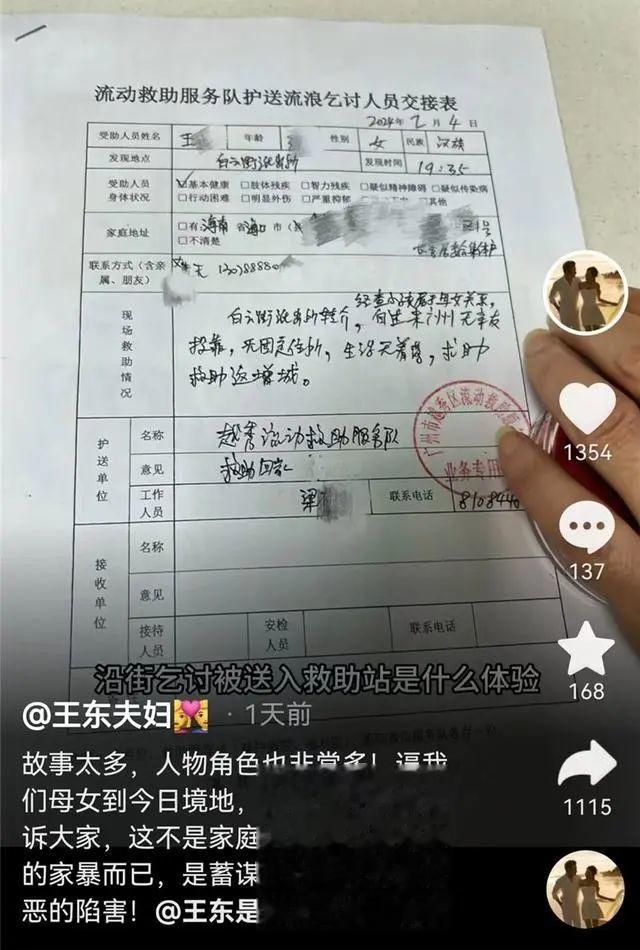 流动救助服务队护送流浪乞讨人员交接表
2024年2月4日
受助人员姓名 王 年龄 性别 女 民族 汉族
发现地点 白云街派出所 发现时间 19:35
受助人员身体状况 ☑基本健康 □肢体残疾 □智力残疾 □疑似精神障碍 □疑似传染病
□行动困难 □明显外伤 □严重抑郁 □其他
家庭地址 □有海南省海口市(县
□不清楚
联系方式(含亲属、朋友)
现场救助情况 经查小孩属于母女关系,
白云街派出所推介,自述来广州无亲友
投靠,无固定住所,生活无着落,求助
救助返增城。
护送单位 名称 越秀流动救助服务队
意见 救助回家
工作人员 梁 联系电话
广州市越秀区流动救助
业务专用
接收单位 名称
意见
接待人员 安检人员 联系电话
沿街乞讨被送入救助站是什么体验
@王东夫妇 · 1天前
故事太多,人物角色也非常多!逼我
们母女到今日境地,
诉大家,这不是家庭
的家暴而已,是蓄谋
恶的陷害!@王东是
1354
137
168
1115